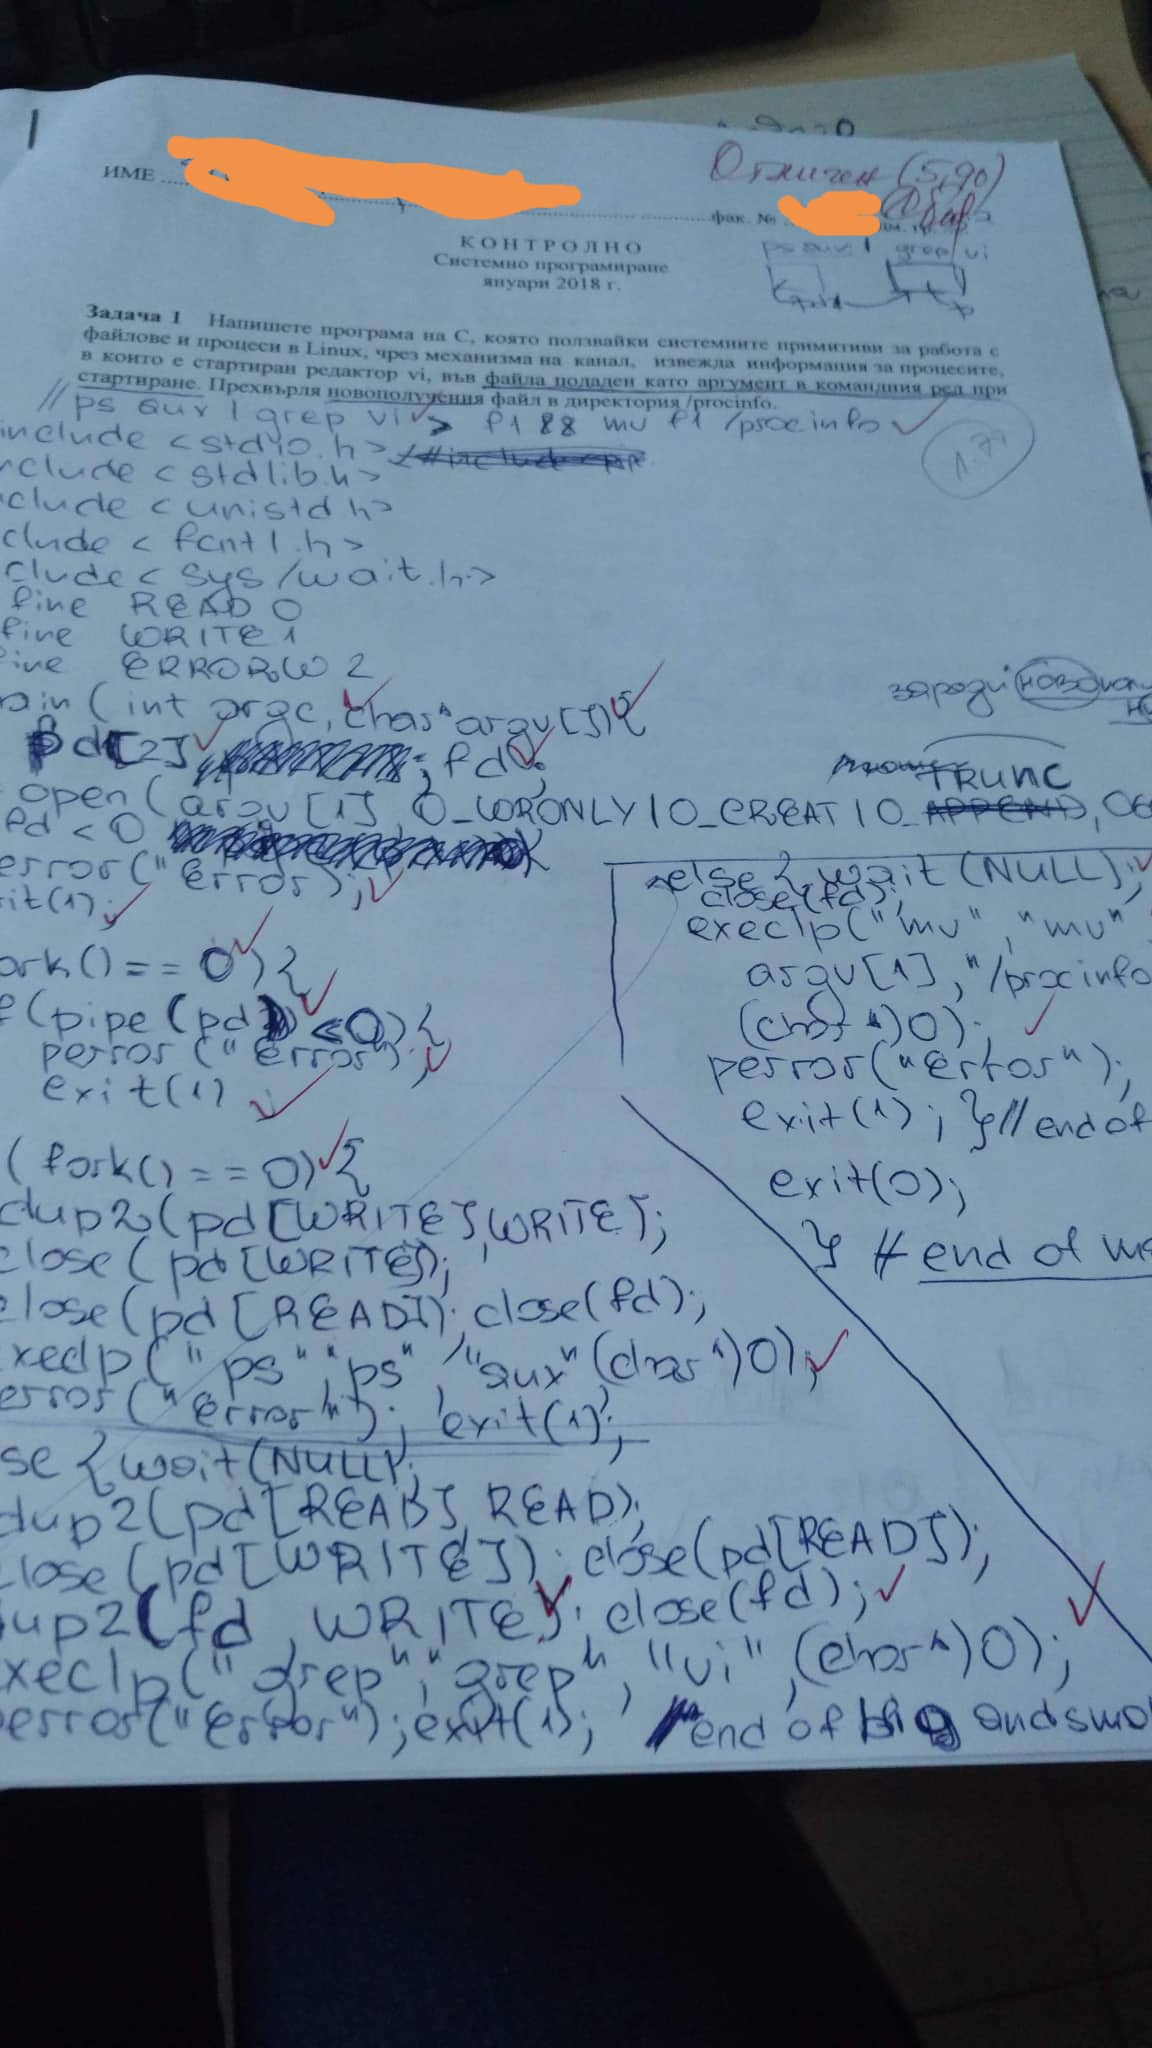 Отличен (5,90)
ИМЕ
фак. №
ps aux | grep vi
КОНТРОЛНО
Системно програмиране
януари 2018 г.
Задача 1 Напишете програма на C, която ползвайки системните примитиви за работа с
файлове и процеси в Linux, чрез механизма на канал, извежда информация за процесите,
в които е стартиран редактор vi, във файла подаден като аргумент в командния ред при
стартиране. Прехвърля новополучения файл в директория /procinfo.
//ps aux | grep vi > f1 && mv f1 /procinfo
include <stdio.h>
nclude <stdlib.h>
clude <unistd.h>
clude < fcntl.h>
clude< sys/wait.h>
fine READ 0
fine WRITE 1
fine ERRORW 2
ain (int argc, char* argv[]){
pd[2]; fd;
зареди
TRUNC
open (argv[1], O_WRONLY | O_CREAT | O_
fd < 0
error("error);
it(1);
ork()== 0){
f (pipe (pd) <0){
perror ("error");
exit(1)
( fork() == 0){
dup2(pd[WRITE],WRITE);
close (pd[WRITE]);
close(pd[READ]); close(fd);
xeclp("ps","ps", "aux"(char*)0);
error("error"); exit(1);
se {wait(NULL);
dup2(pd[READ], READ);
close (pd[WRITE]); close(pd[READ]);
dup2(fd, WRITE); close(fd);
xeclp("grep","grep", "vi", (char*)0);
error("error"); exit(1); end of big and
else { wait(NULL);
close(fd);
execlp("mv", "mv"
argv[1], "/procinfo
(char*)0);
perror("error");
exit(1); }// end of
exit(0);
} // end of